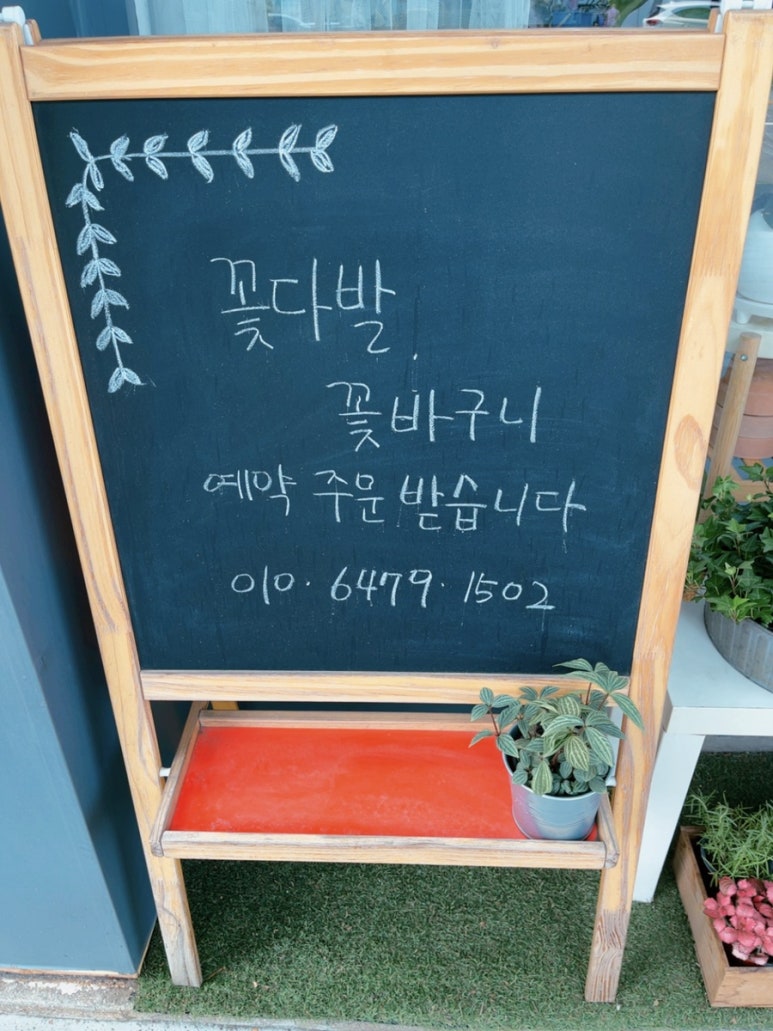 꽃다발.
꽃바구니
예약 주문 받습니다
010. 6479. 1502